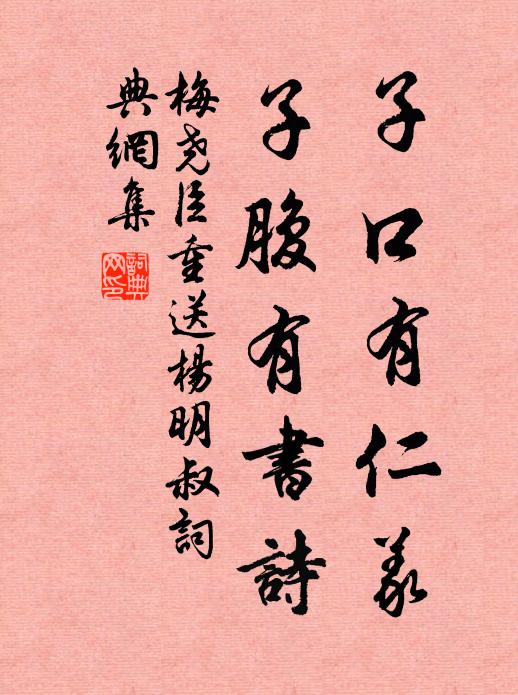 子口有仁義
子腹有書詩
梅尧臣重送楊明叔詞
典網集
詞典網印